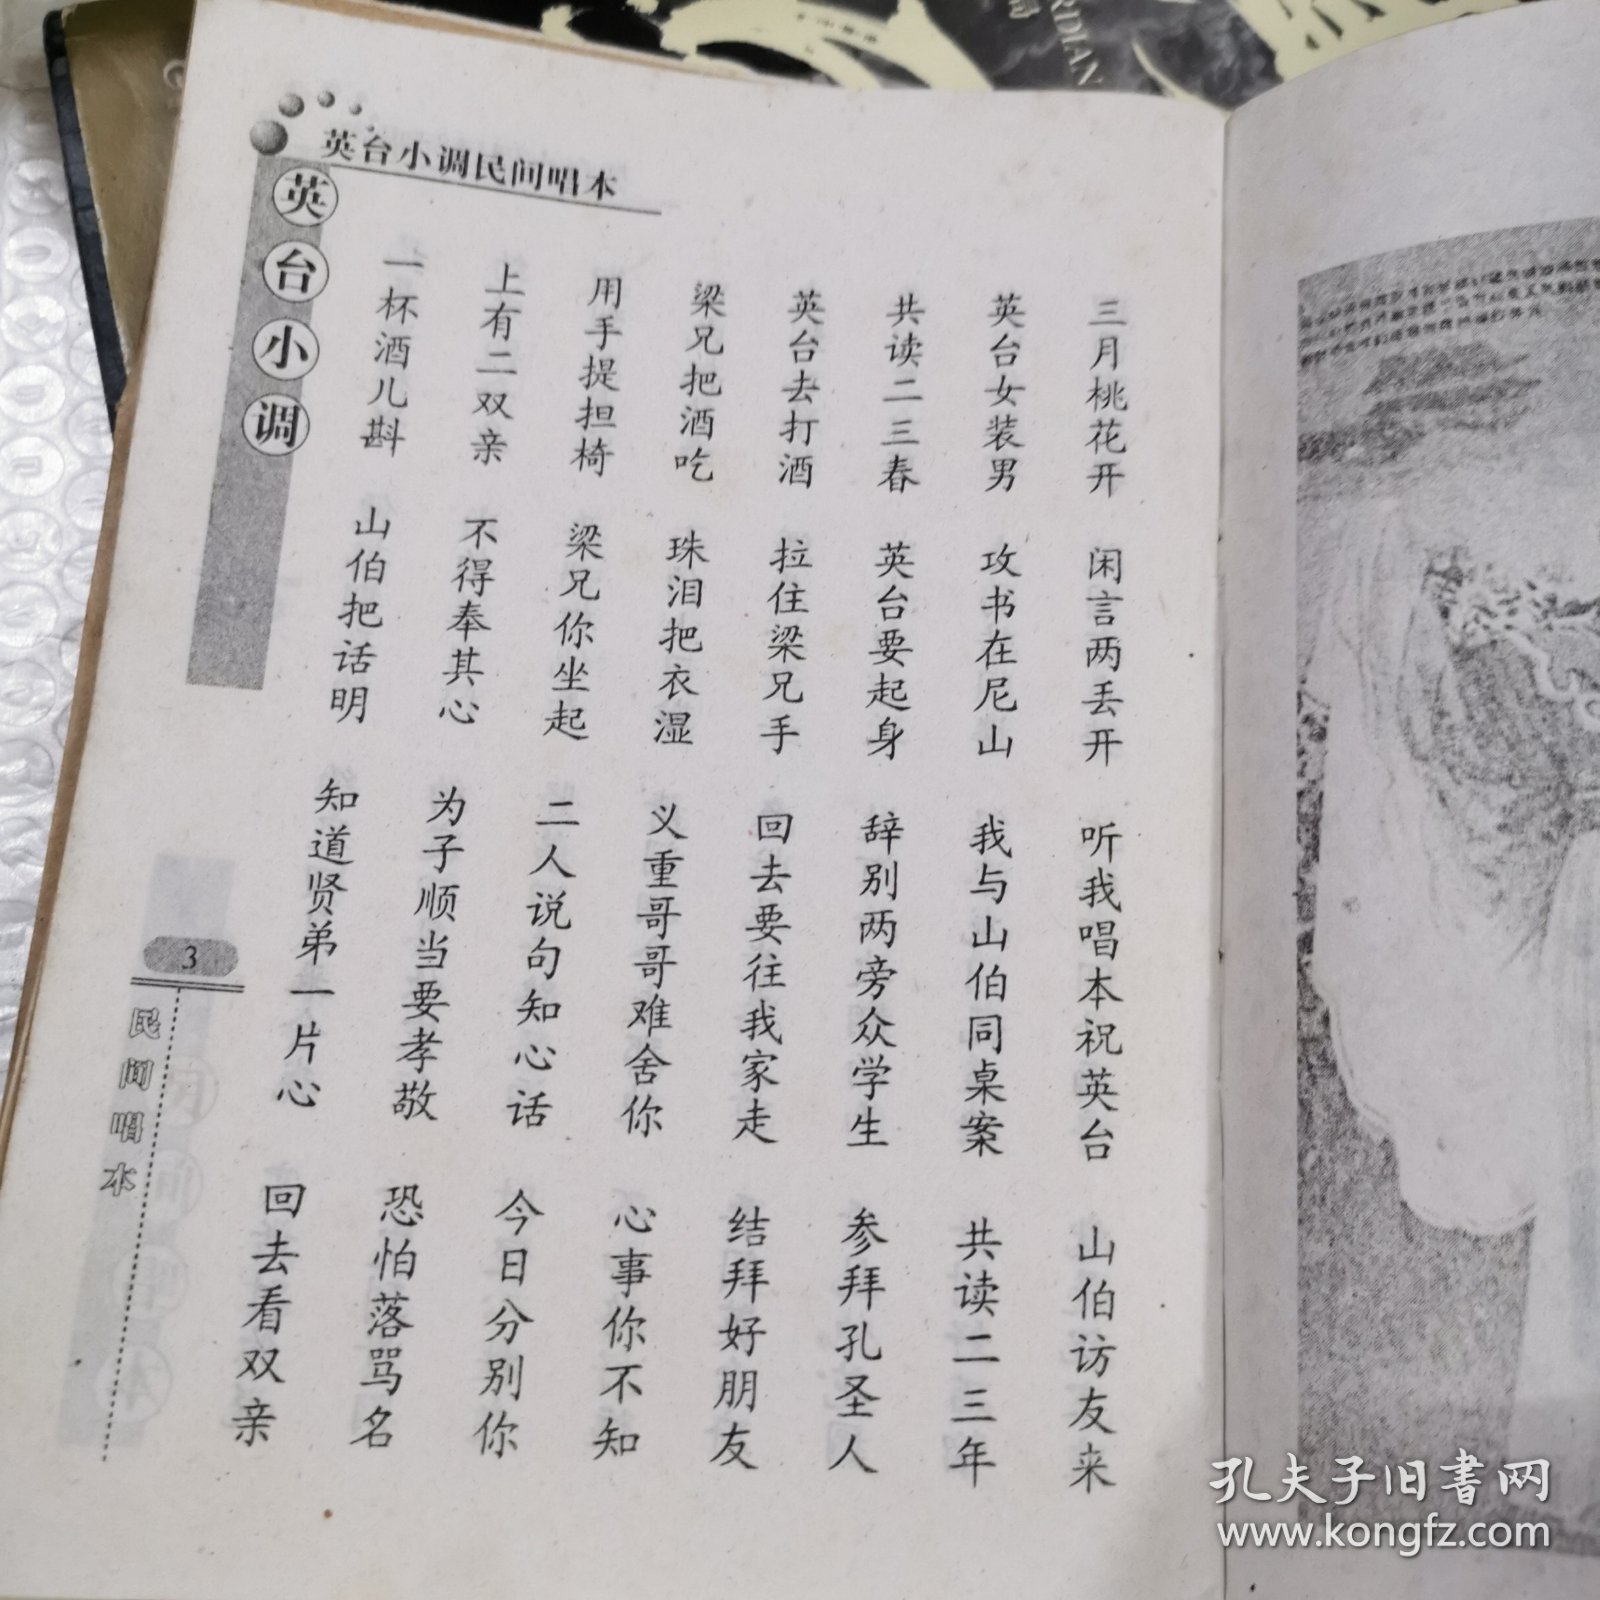 英台小调民间唱本
英台小调
三月桃花开 闲言两丢开 听我唱本祝英台 山伯访友来
英台女装男 攻书在尼山 我与山伯同桌案 共读二三年
共读二三春 英台要起身 辞别两旁众学生 参拜孔圣人
英台去打酒 拉住梁兄手 回去要往我家走 结拜好朋友
梁兄把酒吃 珠泪把衣湿 义重哥哥难舍你 心事你不知
用手提担椅 梁兄你坐起 二人说句知心话 今日分别你
上有二双亲 不得奉其心 为子顺当要孝敬 恐怕落骂名
一杯酒儿斟 山伯把话明 知道贤弟一片心 回去看双亲
3
民间唱本
RDIAN
孔夫子旧书网
www.kongfz.com